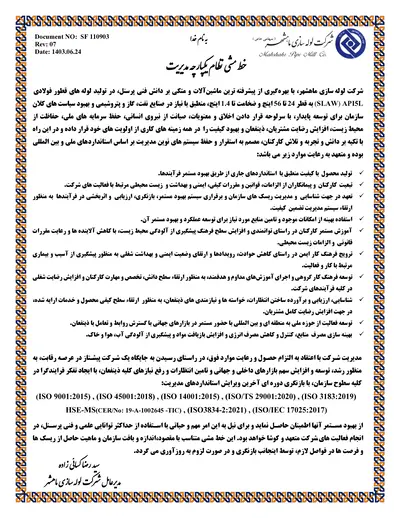 Document NO: SF 110903
Rev: 07
Date: 1403.06.24
به نام خدا
شرکت لوله سازی ماهشهر (سهامی خاص)
Mahshahr Pipe Mill CO.
خط مشی نظام یکپارچه مدیریت
شرکت لوله سازی ماهشهر، با بهره‌گیری از پیشرفته ترین ماشین‌آلات و متکی بر دانش فنی پرسنل، در تولید لوله های قطور فولادی
(SLAW) API5L به قطر 24 تا 56 اینچ و ضخامت تا 1.4 اینچ، منطبق با نیاز در صنایع نفت، گاز و پتروشیمی و بهبود سیاست های کلان
سازمان برای توسعه پایدار، با سرلوحه قرار دادن اخلاق و معنویات، صیانت از نیروی انسانی، حفظ سرمایه های ملی، حفاظت از
محیط زیست، افزایش رضایت مشتریان، ذینفعان و بهبود کیفیت را در همه زمینه های کاری از اولویت های خود قرار داده و در این راه
با تکیه بر دانش و تجربه و تلاش کارکنان، مصمم به استقرار و حفظ سیستم های نوین مدیریت بر اساس استانداردهای ملی و بین المللی
بوده و متعهد به رعایت موارد زیر می باشد:
تولید محصول با کیفیت منطبق با استانداردهای جاری از طریق بهبود مستمر فرآیندها.
تبعیت کارکنان و پیمانکاران از الزامات، قوانین و مقررات کیفی، ایمنی و بهداشت و زیست محیطی مرتبط با فعالیت های شرکت.
تعهد در جهت شناسایی و مدیریت ریسک های سازمان و برقراری سیستم بهبود مستمر، بازنگری، ارزیابی و اثربخشی در فرآیندها به منظور
ارتقاء سیستم مدیریت تضمین کیفیت.
استفاده بهینه از امکانات موجود و تامین منابع مورد نیاز برای توسعه عملکرد و بهبود مستمر آن.
آموزش مستمر کارکنان در راستای توانمندی و افزایش سطح فرهنگ پیشگیری از آلودگی محیط زیست، با کاهش آلاینده ها و رعایت مقررات
قانونی و الزامات زیست محیطی.
ترویج فرهنگ کار ایمن در راستای کاهش حوادث، رویدادها و ارتقای وضعیت ایمنی و بهداشت شغلی به منظور پیشگیری از آسیب و بیماری
مرتبط با کار و فعالیت.
توسعه فرهنگ کار گروهی و اجرای آموزش‌های مداوم و هدفمند، به منظور ارتقاء سطح دانش، تخصص و مهارت کارکنان و افزایش رضایت شغلی
در کلیه فرآیندهای شرکت.
شناسایی، ارزیابی و برآورده ساختن انتظارات، خواسته ها و نیازمندی های ذینفعان، به منظور ارتقاء سطح کیفی محصول و خدمات ارایه شده،
در جهت افزایش رضایت کامل مشتریان.
توسعه فعالیت از حوزه ملی به منطقه ای و بین المللی با حضور مستمر در بازارهای جهانی با گسترش روابط و تعامل با ذینفعان.
بهینه سازی مصرف منابع، کنترل و کاهش مصرف انرژی و افزایش بازیافت مواد و پیشگیری از آلودگی آب، هوا و خاک.
مدیریت شرکت با اعتقاد به التزام حصول و رعایت موارد فوق، در راستای رسیدن به جایگاه یک شرکت پیشتاز در عرصه رقابت، به
منظور رشد، توسعه و افزایش سهم بازارهای داخلی و جهانی و تامین انتظارات و رفع نیازهای کلیه ذینفعان، با ایجاد تفکر فرایندگرا در
کلیه سطوح سازمان، با بازنگری دوره ای آخرین ویرایش استانداردهای مدیریت:
(ISO 9001:2015) , (ISO 45001:2018) , (ISO 14001:2015) , (ISO/TS 29001:2020) , (ISO 3183:2019)
HSE-MS(CER/No: 19-A-1002645 -TIC) , (ISO3834-2:2021) , (ISO/IEC 17025:2017)
از بهبود مستمر آنها اطمینان حاصل نماید و برای نیل به این امر مهم و حیاتی با استفاده از حداکثر توانایی علمی و فنی پرسنل، در
انجام فعالیت های شرکت متعهد و کوشا خواهد بود. این خط مشی متناسب با مقصود،اندازه و بافت سازمان و ماهیت حاصل از ریسک ها
و فرصت ها در فواصل لازم، توسط اینجانب بازنگری و در صورت لزوم به روزآوری می گردد.
سید رضا کسائی زاده
مدیرعامل شرکت لوله سازی ماهشهر